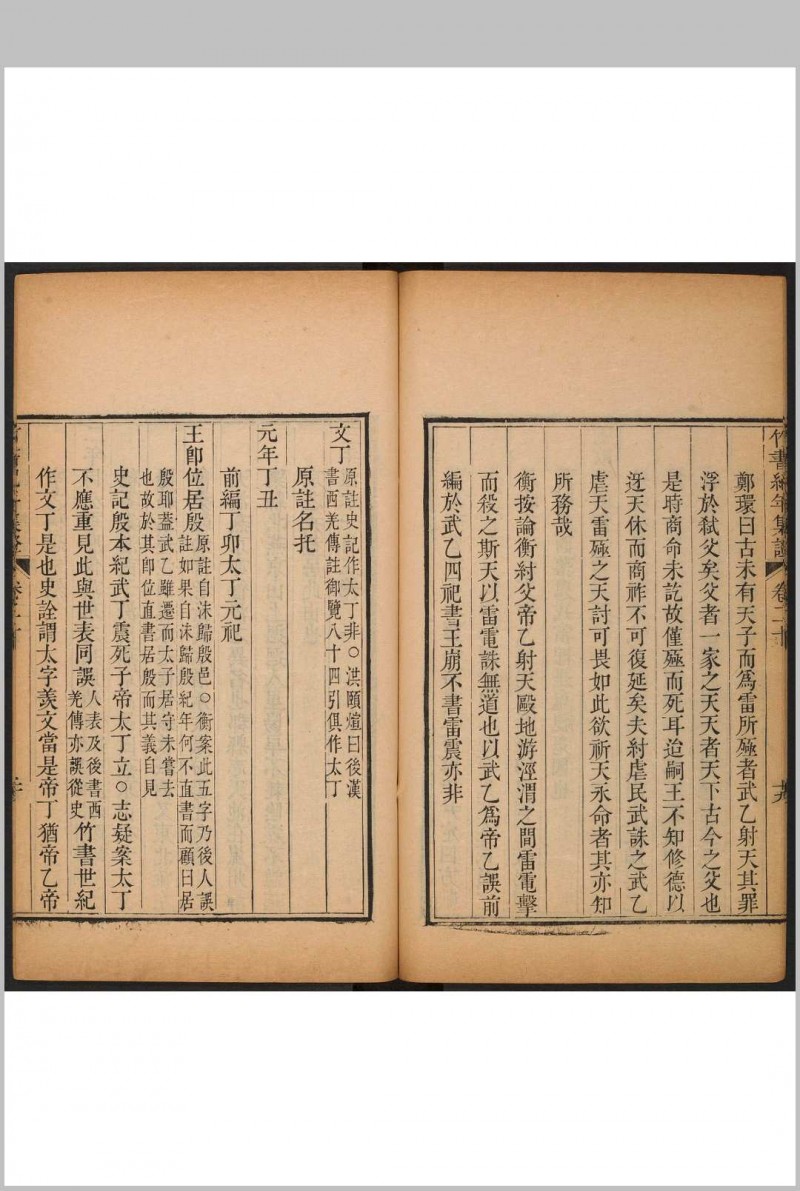 竹書紀年集證 卷二十
鄭環曰古未有天子而爲雷所殛者武乙射天其罪
浮於弒父矣父者一家之天天者天下古今之父也
是時商命未訖故僅殛而死耳迨嗣王不知修德以
迓天休而商祚不可復延矣夫紂虐民武誅之武乙
虐天雷殛之天討可畏如此欲祈天永命者其亦知
所務哉
衡按論衡紂父帝乙射天毆地游涇渭之間雷電擊
而殺之斯天以雷電誅無道也以武乙爲帝乙誤前
編於武乙四祀書王崩不書雷震亦非
文丁原註史記作太丁非○洪頤煊曰後漢
書西羌傳註御覽八十四引俱作太丁
原註名托
元年丁丑
前編丁卯太丁元祀
王卽位居殷原註自沬歸殷邑○衡案此五字乃後人誤
註如果自沬歸殷紀年何不直書而顧曰居
殷耶蓋武乙雖遷而太子居守未嘗去
也故於其卽位直書居殷而其義自見
史記殷本紀武丁震死子帝太丁立○志疑案太丁
不應重見此與世表同誤人表及後書西
羌傳亦誤從史竹書世紀
作文丁是也史詮謂太字羨文當是帝丁猶帝乙帝